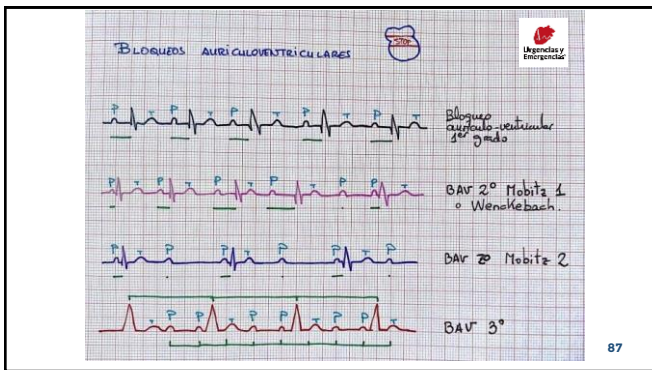 BLOQUEOS AURICULOVENTRICULARES
STOP
Urgencias y
Emergencias
P T P T P T P T P T
Bloqueo
aurículo-ventricular
1er grado
P T P T P T P T P P T
BAV 2º Mobitz 1
o Wenckebach.
P T P P T P P T P
BAV 2º Mobitz 2
T P P T P P T P P T
BAV 3º
87